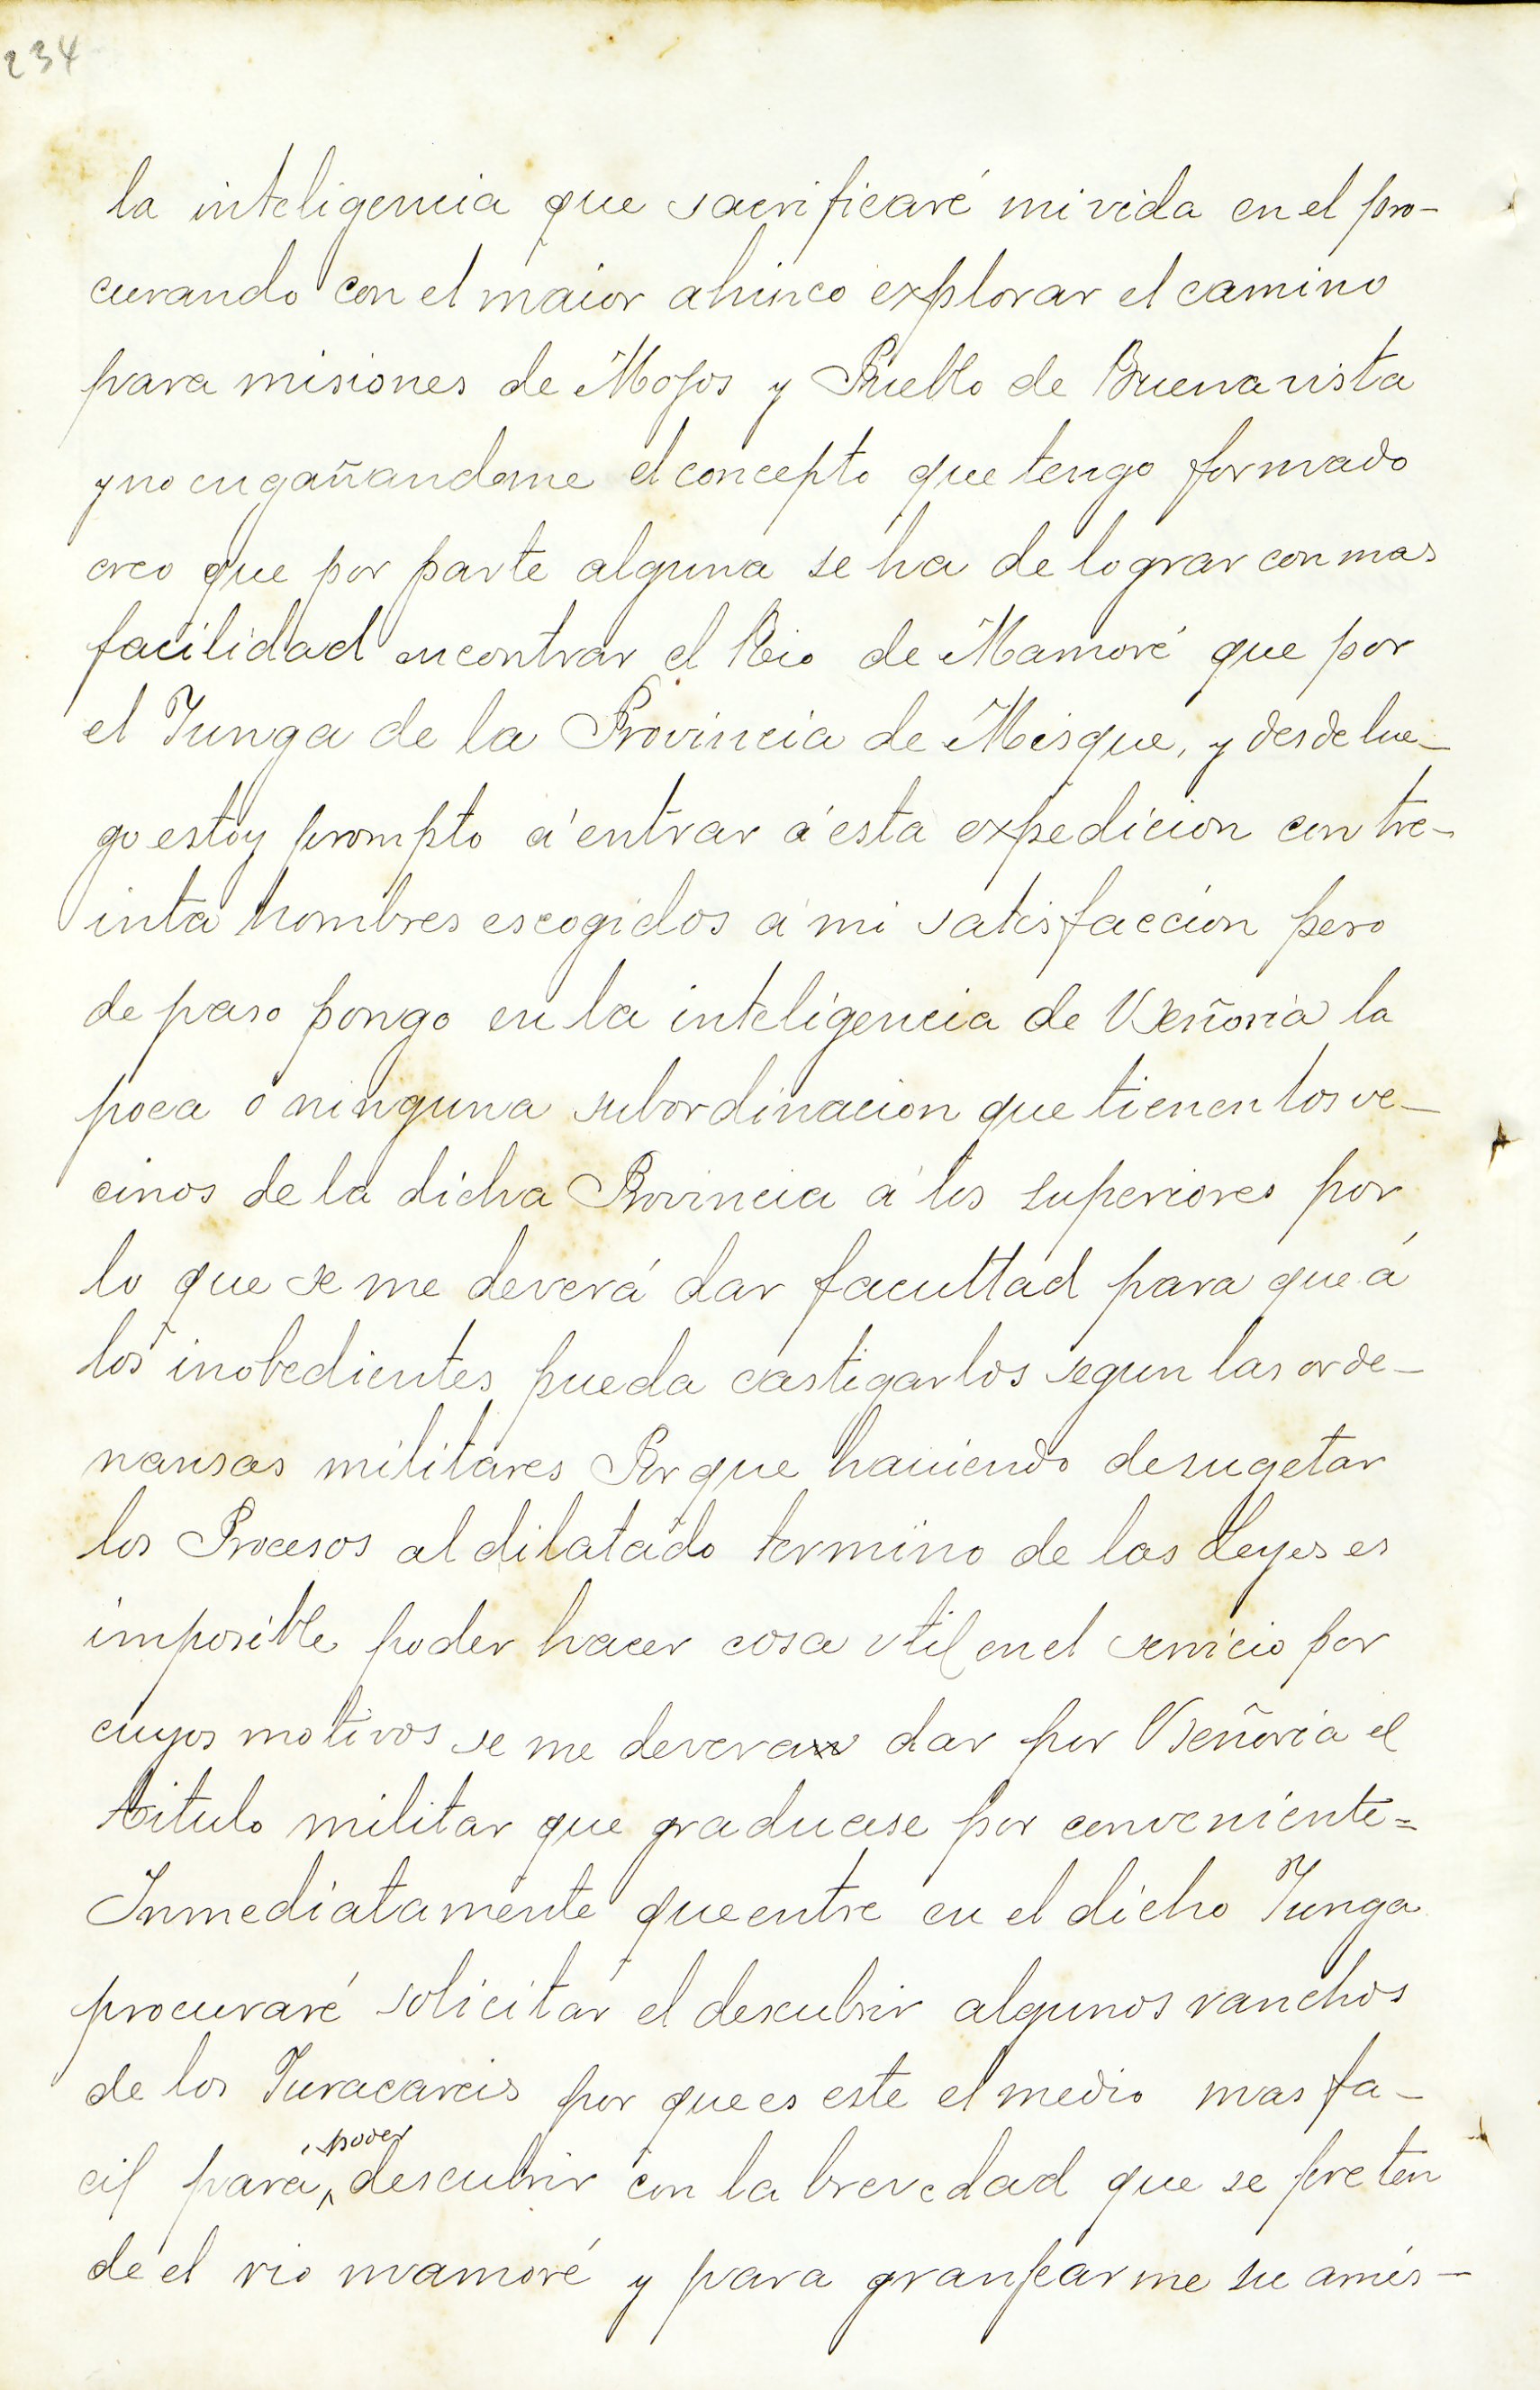 234
la inteligencia que sacrificaré mi vida en el pro-
curando con el maior ahinco explorar el camino
para misiones de Mojos y Pueblo de Buenavista
y no engañandome el concepto que tengo formado
creo que por parte alguna se ha de lograr con mas
facilidad encontrar el Rio de Mamoré que por
el Yunga de la Provincia de Misque, y desde lue-
go estoy prompto á entrar á esta expedicion con tre-
inta hombres escogidos á mi satisfaccion pero
de paso pongo en la inteligencia de VSeñoria la
poca ó ninguna subordinacion que tienen los ve-
cinos de la dicha Provincia á los superiores por
lo que se me deverá dar facultad para que á
los inobedientes pueda castigarlos segun las orde-
nansas militares Por que haviendo desugetar
los Procesos al dilatado termino de las Leyes es
imposible poder hacer cosa vtil en el servicio por
cuyos motivos se me devera dar por VSeñoria el
titulo militar que graduase por conveniente=
Inmediatamente que entre en el dicho Yunga
procuraré solicitar el descubrir algunos ranchos
de los Yuracareis por que es este el medio mas fa-
cil para poder descubrir con la brevedad que se preten
de el rio mamoré y para granpearme su amis-